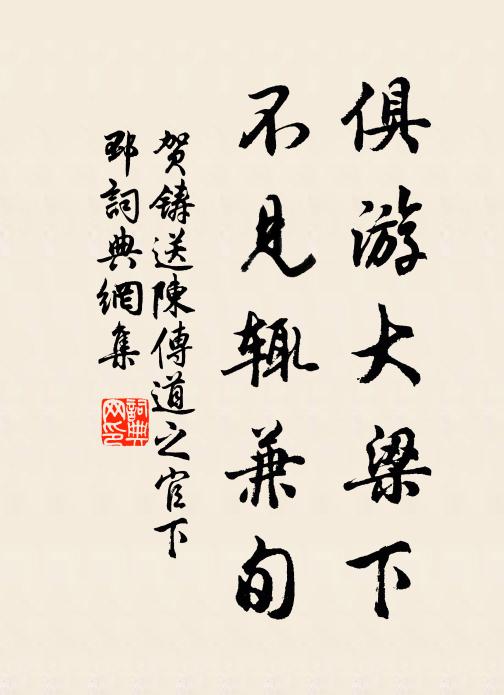 俱游大梁下
不见辄兼旬
贺铸送陳傳道之官下
邳詞典網集
詞典
网印